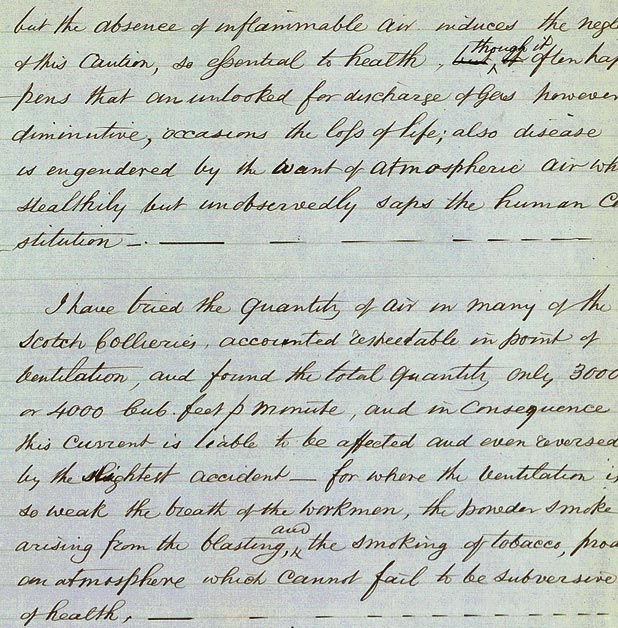 but the absence of inflammable air induces the negl
of this Caution, so essential to health, but it though it often hap
pens that an unlooked for discharge of Gas however
diminutive, occasions the loss of life; also disease
is engendered by the want of atmospheric air wh
stealthily but unobservedly saps the human Co
stitution
I have tried the quantity of air in many of the
Scotch Collieries, accounted respectable in point of
Ventilation, and found the total quantity only 3000
or 4000 Cub. feet p minute, and in consequence
this current is liable to be affected and even reversed
by the slightest accident — for where the ventilation is
so weak the breath of the workmen, the powder smoke
arising from the blasting, and the smoking of tobacco, prod
an atmosphere which cannot fail to be subversive
of health,